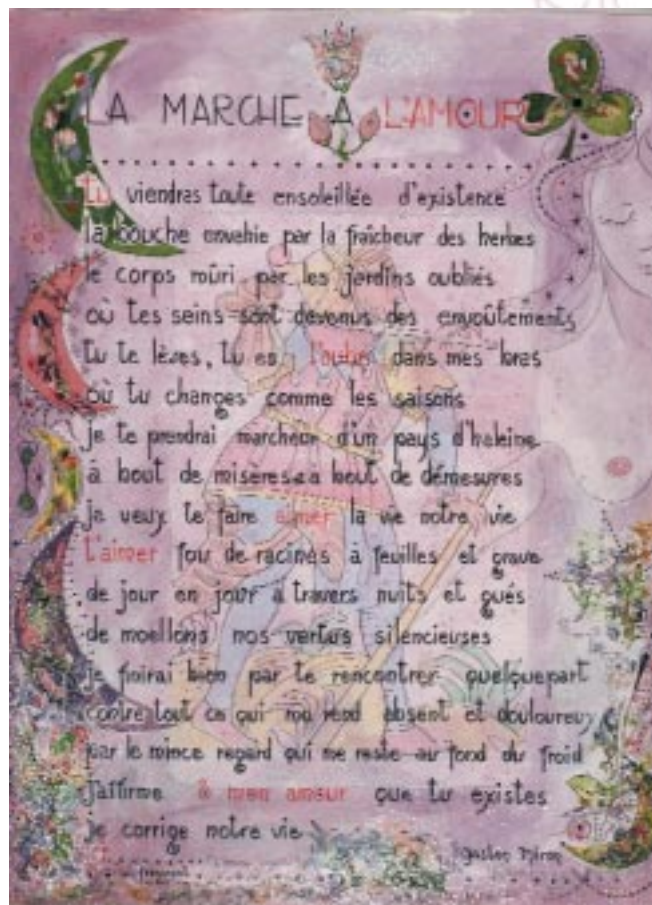 LA MARCHE A L'AMOUR
tu viendras toute ensoleillée d'existence
la bouche envahie par la fraîcheur des herbes
le corps mûri par les jardins oubliés
où tes seins sont devenus des envoûtements
tu te lèves, tu es l'aube dans mes bras
où tu changes comme les saisons
je te prendrai marcheur d'un pays d'haleine
à bout de misères à bout de démesures
je veux te faire aimer la vie notre vie
t'aimer fou de racines à feuilles et grave
de jour en jour à travers nuits et gués
de moellons nos vertus silencieuses
je finirai bien par te rencontrer quelquepart
contre tout ce qui me rend absent et douloureux
par le mince regard qui me reste au fond du froid
j'affirme ô mon amour que tu existes
je corrige notre vie
gaston miron